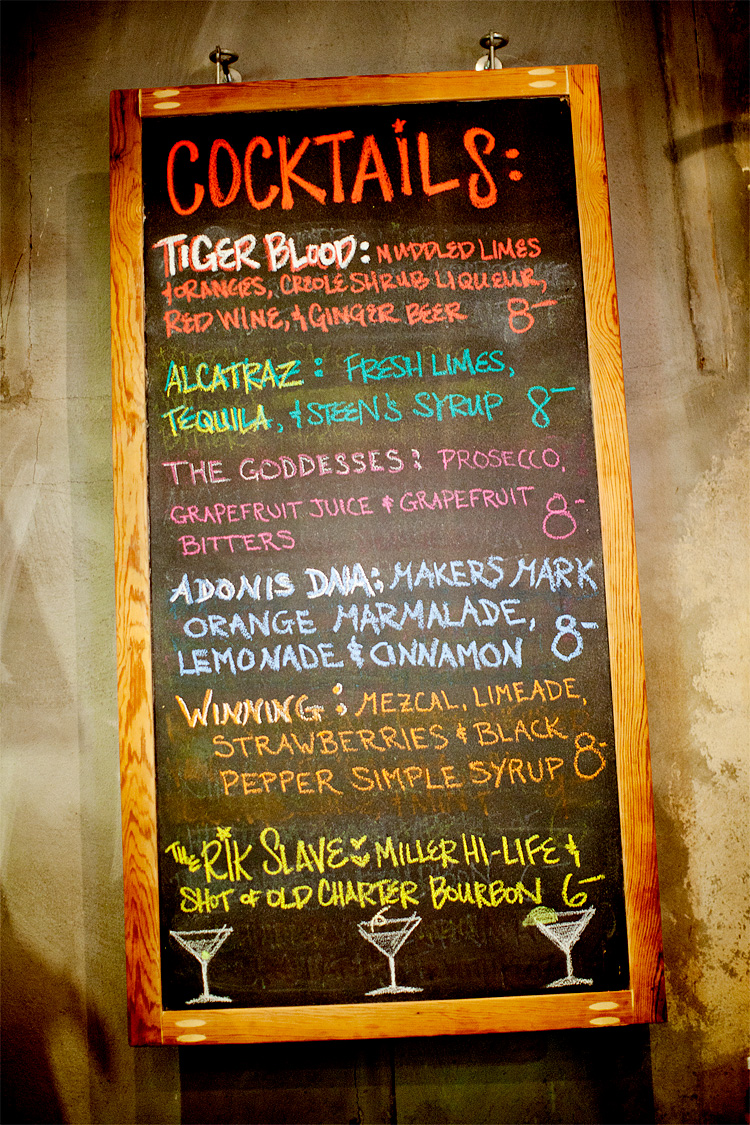 COCKTAILS:
TIGER BLOOD: MUDDLED LIMES
+ ORANGES, CREOLE SHRUB LIQUEUR,
RED WINE, & GINGER BEER 8-
ALCATRAZ: FRESH LIMES,
TEQUILA, & STEEN'S SYRUP 8-
THE GODDESSES: PROSECCO,
GRAPEFRUIT JUICE & GRAPEFRUIT
BITTERS 8-
ADONIS DNA: MAKERS MARK
ORANGE MARMALADE,
LEMONADE & CINNAMON 8-
WINNING: MEZCAL, LIMEADE,
STRAWBERRIES & BLACK
PEPPER SIMPLE SYRUP 8-
THE RIK SLAVE: MILLER HI-LIFE &
SHOT OF OLD CHARTER BOURBON 6-